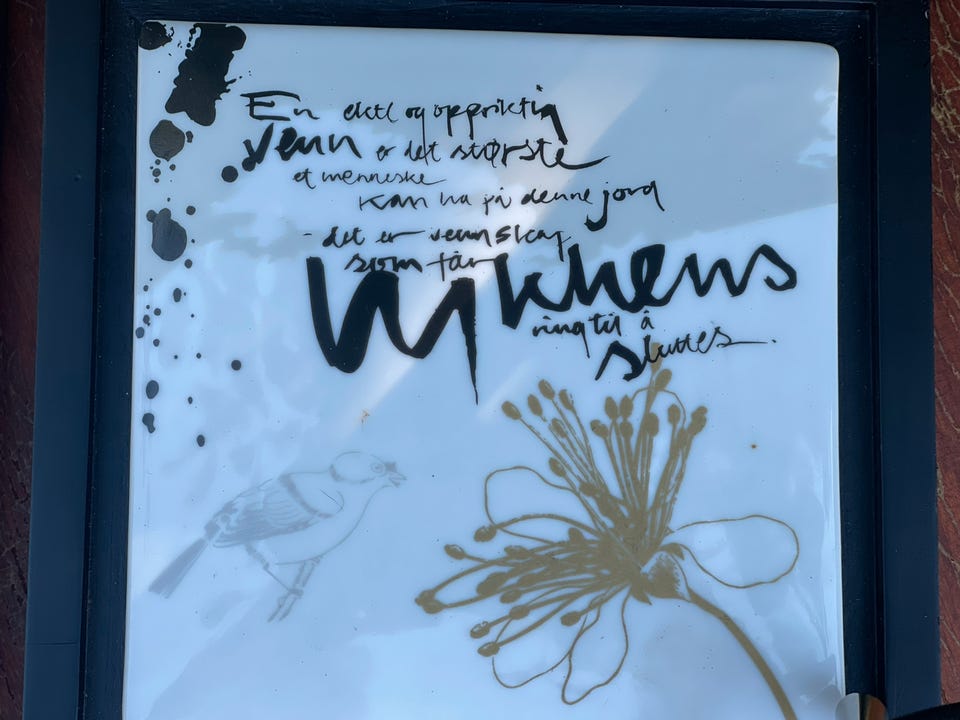 En ekte og oppriktig
venn er det største
et menneske
kan ha på denne jord
- det er vennskap
som får
lykkens
ring til å
sluttes.